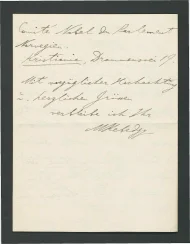 Comité Nobel du Parlement
Norvégien.
Kristiania, Drammensvei 19.
Mit vorzüglicher Hochachtung
u. herzliche Grüße
verbleibe ich Ihr